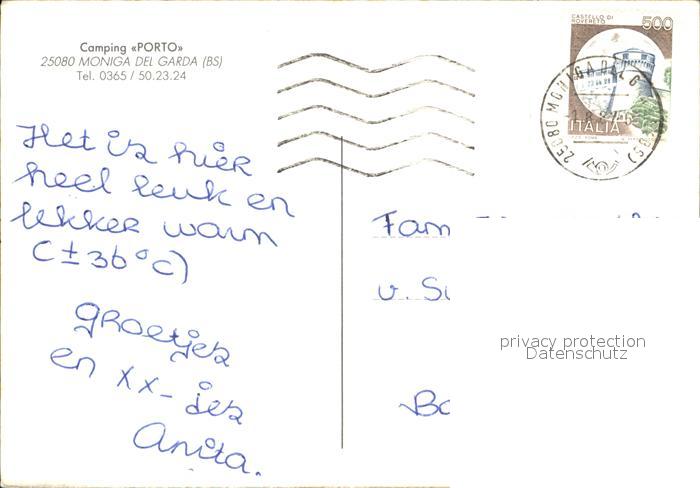 Camping «PORTO»
25080 MONIGA DEL GARDA (BS)
Tel. 0365 / 50.23.24
CASTELLO DI
ROVERETO
500
ITALIA
25080 MONIGA DEL G
Het is hier
heel leuk en
lekker warm
(± 36°C)
groetjes
en xx-jes
Anita.
Fam
v.
privacy protection
Datenschutz